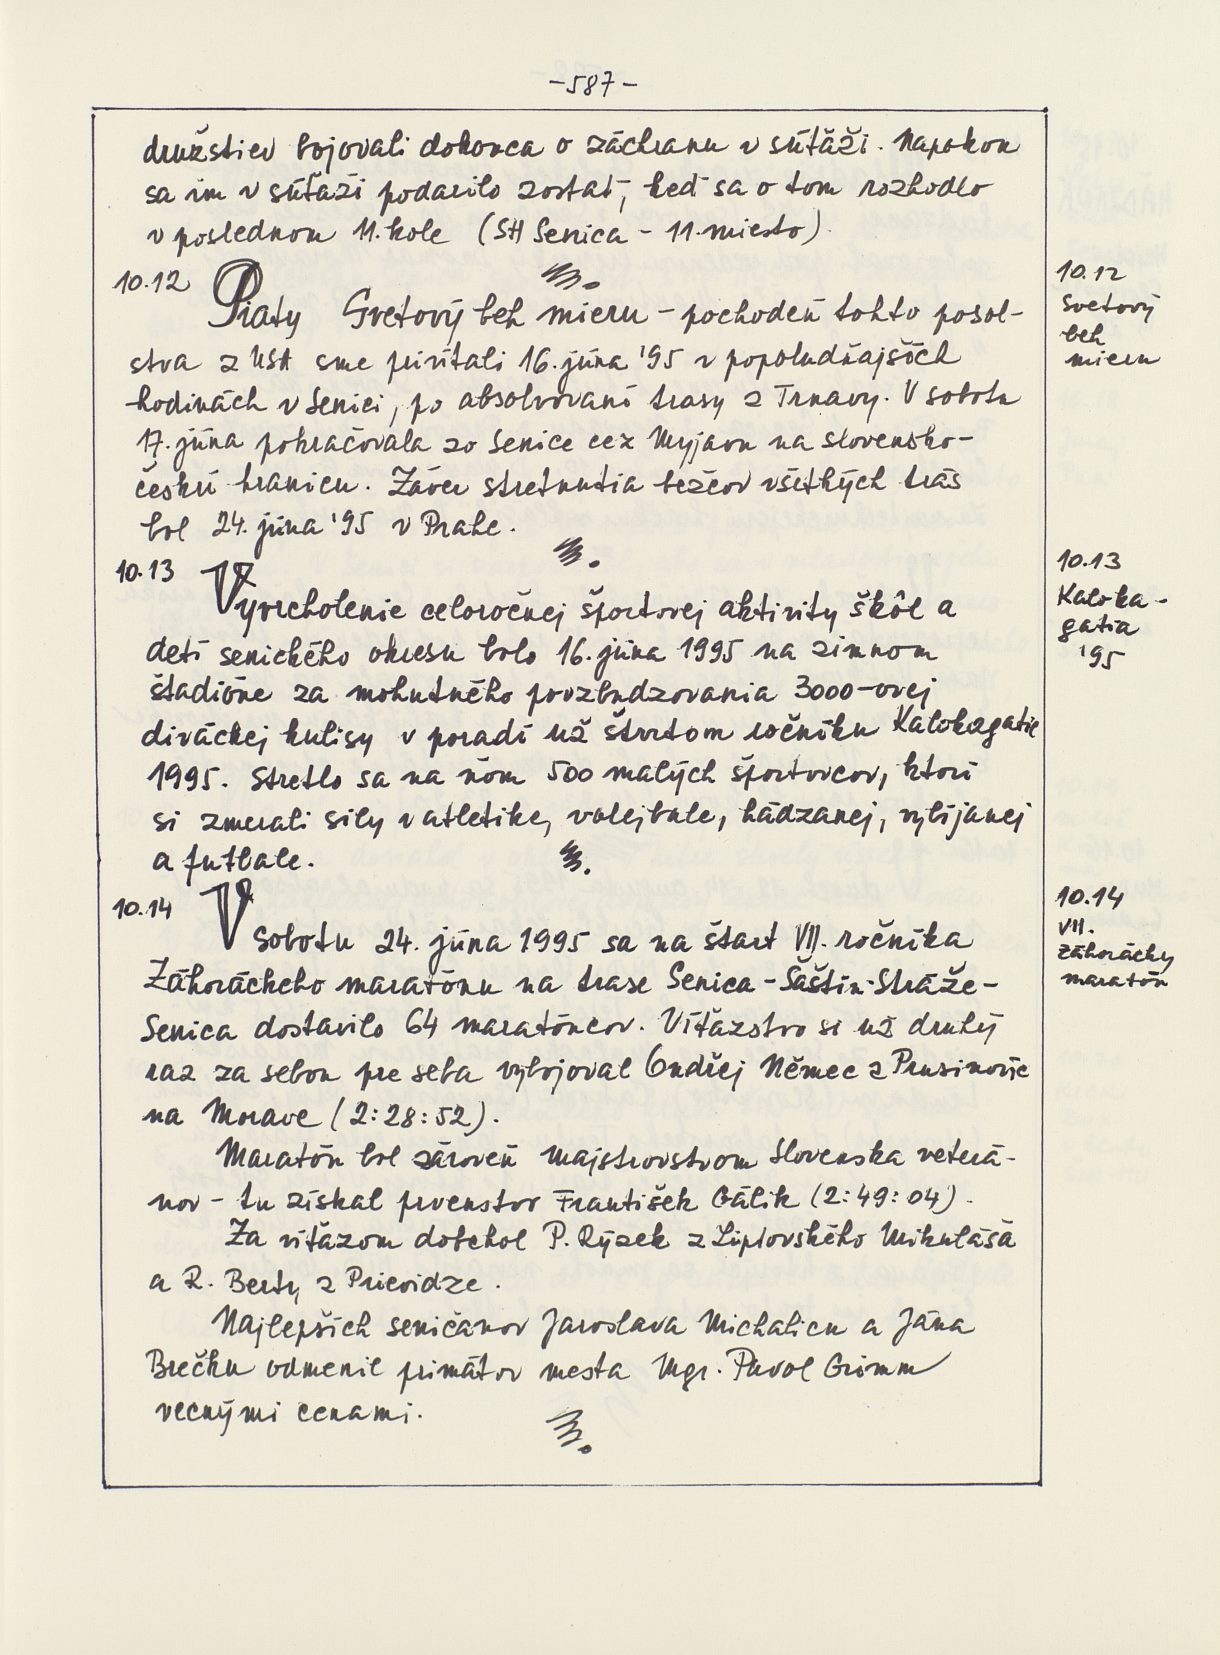 -587-
družstiev bojovali dokonca o záchranu v súťaži. Napokon
sa im v súťaži podarilo zostať, keď sa o tom rozhodlo
v poslednom 11. kole (SH Senica - 11. miesto).
10.12
Piaty Svetový beh mieru - pochodeň tohto posol-
stva z USA sme privítali 16. júna '95 v popoludňajších
hodinách v Senici, po absolvovaní trasy z Trnavy. V sobotu
17. júna pokračovala zo Senice cez Myjavu na slovensko-
českú hranicu. Záver stretnutia bežcov všetkých trás
bol 24. júna '95 v Prahe.
10.12
Svetový
beh
mieru
10.13
Vyvrcholenie celoročnej športovej aktivity škôl a
detí senického okresu bolo 16. júna 1995 na zimnom
štadióne za mohutného povzbudzovania 3000-ovej
diváckej kulisy v poradí už štvrtom ročníku Kalokagatie
1995. Stretlo sa na ňom 500 malých športovcov, ktorí
si zmerali sily v atletike, volejbale, hádzanej, vybíjanej
a futbale.
10.13
Kaloka-
gatia
'95
10.14
V sobotu 24. júna 1995 sa na štart VII. ročníka
Záhoráckeho maratónu na trase Senica - Šaštín-Stráže -
Senica dostavilo 64 maratóncov. Víťazstvo si už druhý
raz za sebou pre seba vybojoval Ondřej Němec z Prusinovic
na Morave (2:28:52).
Maratón bol zároveň majstrovstvom Slovenska veterá-
nov - tu získal prvenstvo František Gálik (2:49:04).
Za víťazom dobehol P. Rýzek z Liptovského Mikuláša
a R. Berty z Prievidze.
Najlepších seničanov Jaroslava Michalicu a Jána
Brečku odmenil primátor mesta Mgr. Pavol Grimm
vecnými cenami.
10.14
VII.
záhorácky
maratón